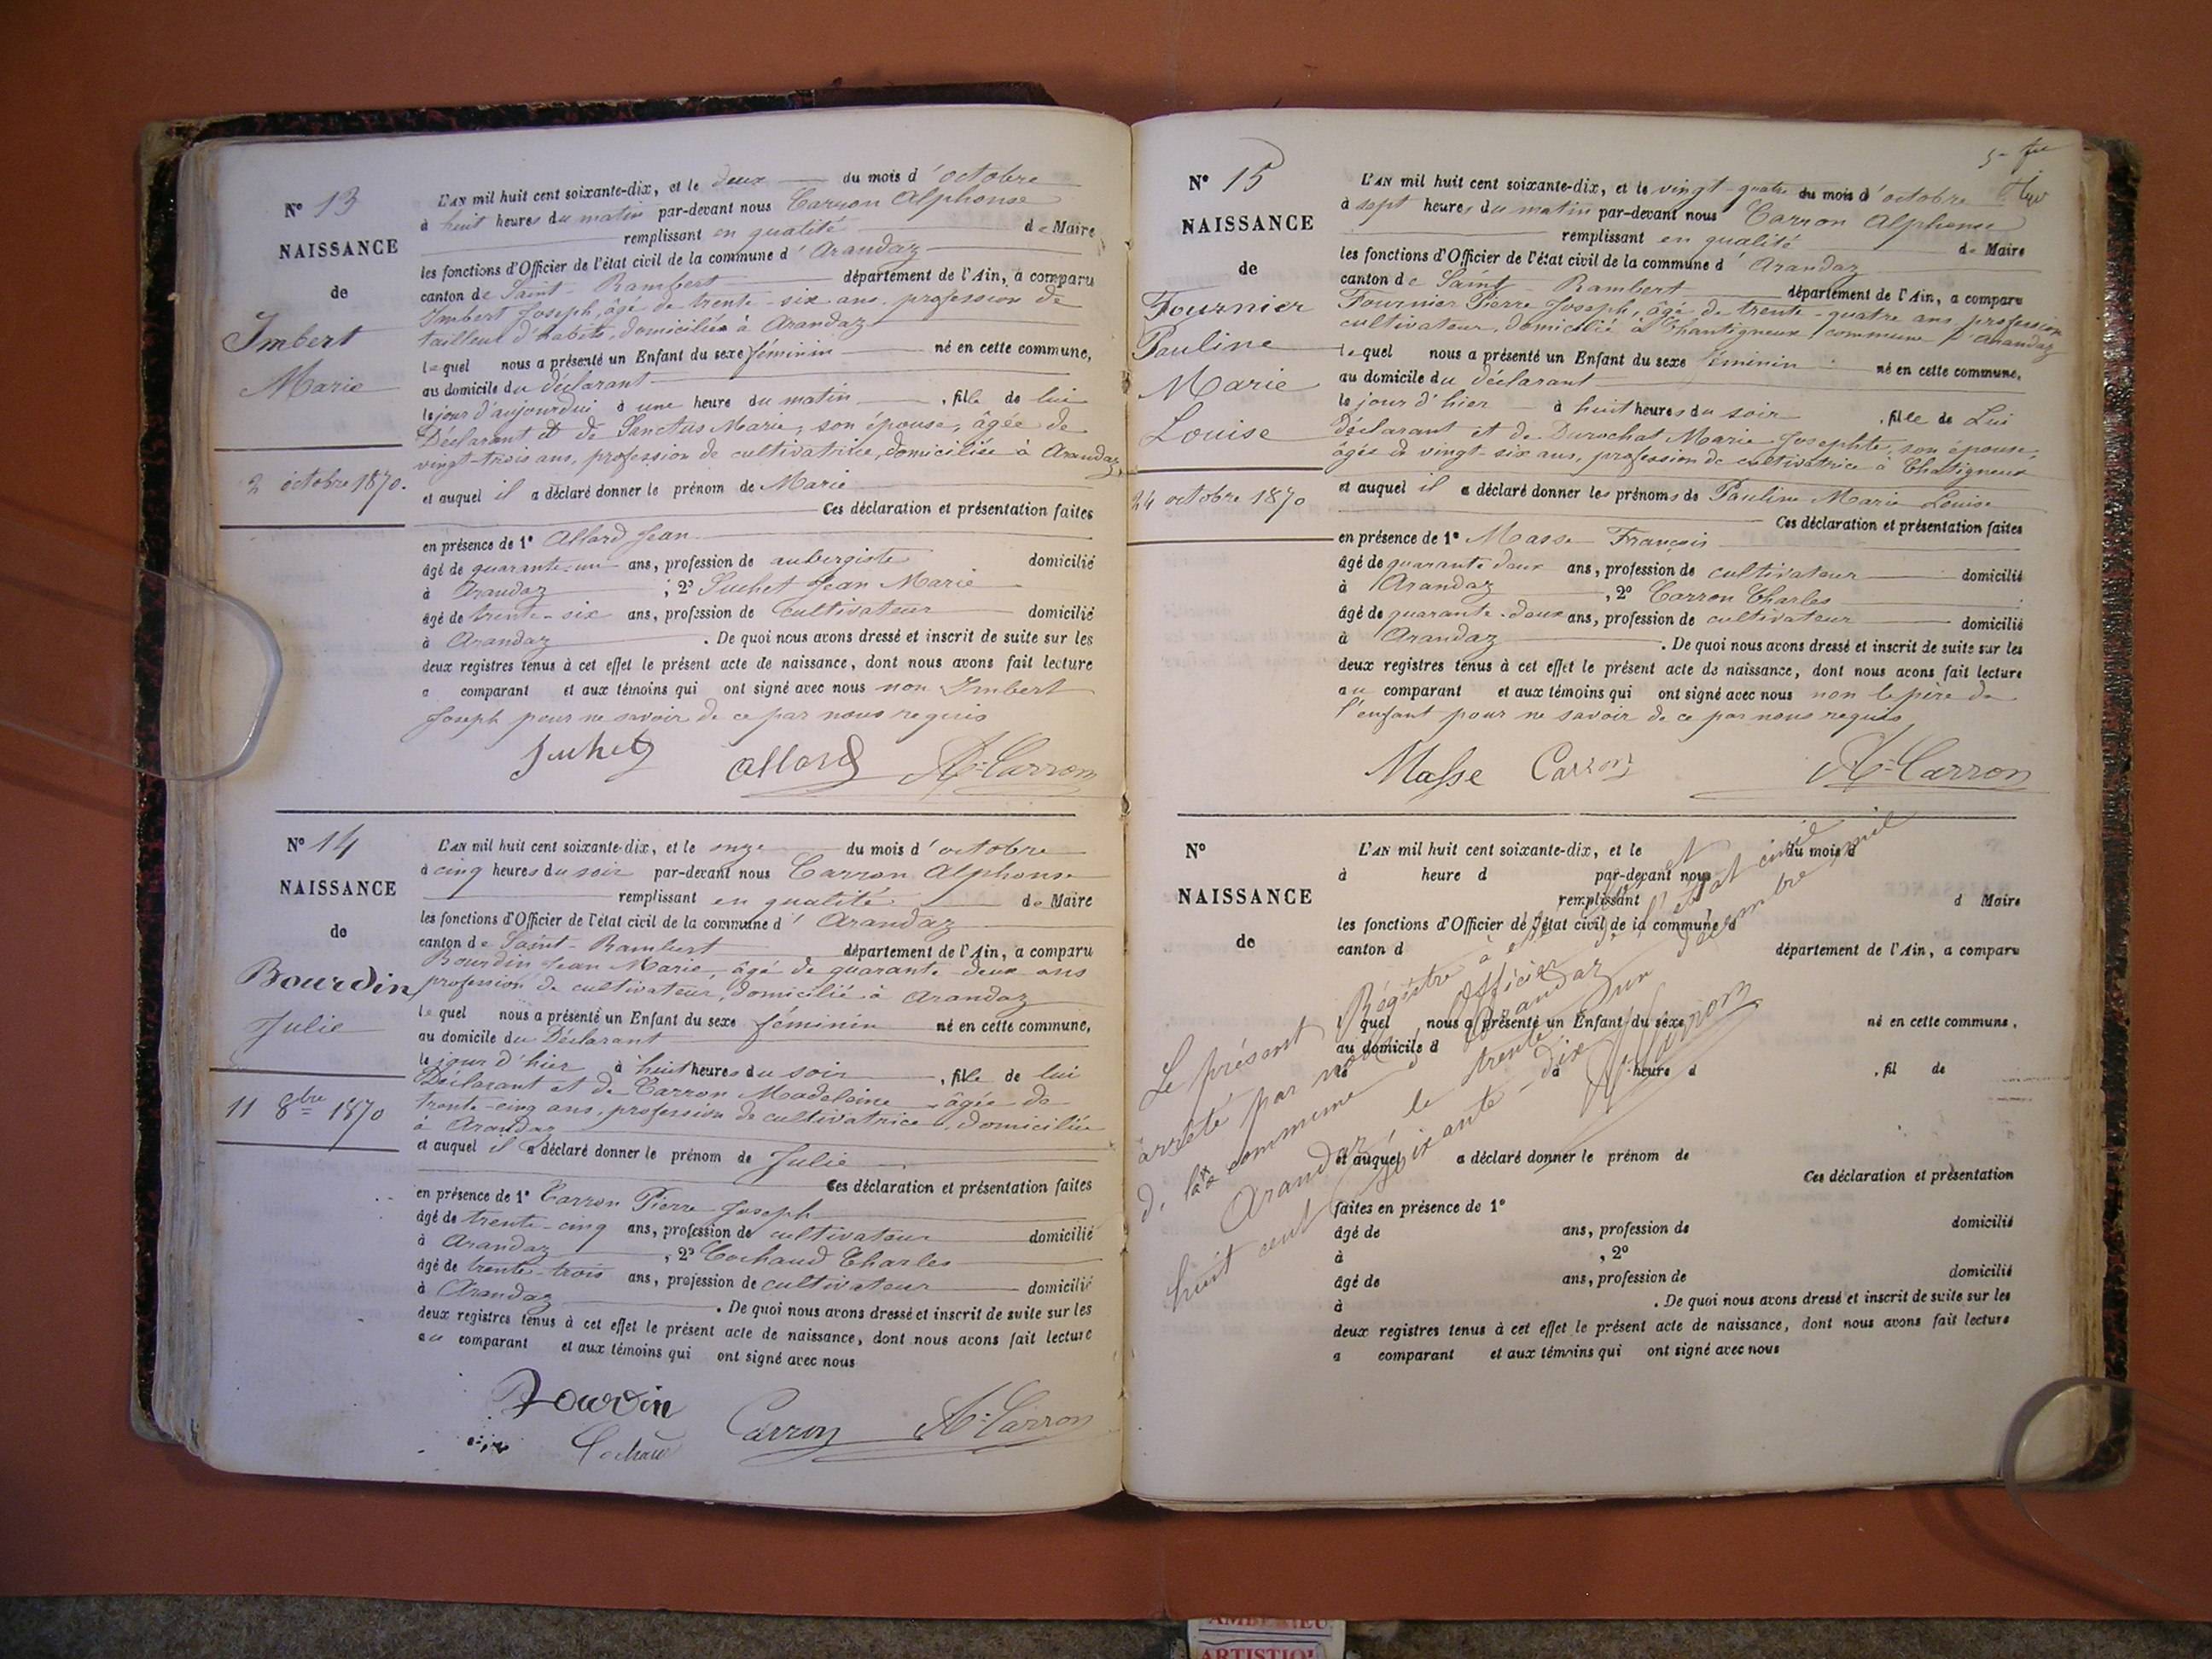 N° 13
NAISSANCE
de
Imbert
Marie
2 octobre 1870.
L'AN mil huit cent soixante-dix, et le deux du mois d'octobre
à huit heures du matin par-devant nous Carron Alphonse
remplissant en qualité de Maire
les fonctions d'Officier de l'état civil de la commune d'Arandaz
canton de Saint-Rambert département de l'Ain, a comparu
Imbert Joseph, âgé de trente-six ans, profession de
tailleur d'habits, domicilié à Arandaz
lequel nous a présenté un Enfant du sexe féminin né en cette commune,
au domicile du déclarant
le jour d'aujourdui à une heure du matin, fille de lui
Déclarant et de Sanctus Marie, son épouse, âgée de
vingt-trois ans, profession de cultivatrice, domiciliée à Arandaz
et auquel il a déclaré donner le prénom de Marie
Ces déclaration et présentation faites
en présence de 1° Allard Jean
âgé de quarante-un ans, profession de aubergiste domicilié
à Arandaz ; 2° Suchet Jean Marie
âgé de trente-six ans, profession de cultivateur domicilié
à Arandaz. De quoi nous avons dressé et inscrit de suite sur les
deux registres tenus à cet effet le présent acte de naissance, dont nous avons fait lecture
a comparant et aux témoins qui ont signé avec nous non Imbert
Joseph pour ne savoir de ce par nous requis
Suchet Allard A. Carron
N° 14
NAISSANCE
de
Bourdin
Julie
11 8bre 1870
L'AN mil huit cent soixante-dix, et le onze du mois d'octobre
à cinq heures du soir par-devant nous Carron Alphonse
remplissant en qualité de Maire
les fonctions d'Officier de l'état civil de la commune d'Arandaz
canton de Saint-Rambert département de l'Ain, a comparu
Bourdin Jean Marie, âgé de quarante-deux ans
profession de cultivateur, domicilié à Arandaz
lequel nous a présenté un Enfant du sexe féminin né en cette commune,
au domicile du Déclarant
le jour d'hier à huit heures du soir, fille de lui
Déclarant et de Carron Madeleine âgée de
trente-cinq ans, profession de cultivatrice, domiciliée
à Arandaz
et auquel il a déclaré donner le prénom de Julie
Ces déclaration et présentation faites
en présence de 1° Carron Pierre Joseph
âgé de trente-cinq ans, profession de cultivateur domicilié
à Arandaz, 2° Cochaud Charles
âgé de trente-trois ans, profession de cultivateur domicilié
à Arandaz. De quoi nous avons dressé et inscrit de suite sur les
deux registres tenus à cet effet le présent acte de naissance, dont nous avons fait lecture
au comparant et aux témoins qui ont signé avec nous
Bourdin
Cochaud Carron A. Carron
N° 15
NAISSANCE
de
Fournier
Pauline
Marie
Louise
24 octobre 1870
L'AN mil huit cent soixante-dix, et le vingt-quatre du mois d'octobre
à sept heures du matin par-devant nous Carron Alphonse
remplissant en qualité de Maire
les fonctions d'Officier de l'état civil de la commune d'Arandaz
canton de Saint-Rambert département de l'Ain, a comparu
Fournier Pierre Joseph, âgé de trente-quatre ans, profession
cultivateur, domicilié à Chantigneux, commune d'Arandaz
lequel nous a présenté un Enfant du sexe féminin né en cette commune,
au domicile du déclarant
le jour d'hier à huit heures du soir, fille de Lui
déclarant et de Durochat Marie Josephte, son épouse,
âgée de vingt-six ans, profession de cultivatrice à Chatigneux
et auquel il a déclaré donner les prénoms de Pauline Marie Louise
Ces déclaration et présentation faites
en présence de 1° Masse François
âgé de quarante deux ans, profession de cultivateur domicilié
à Arandaz, 2° Carron Charles
âgé de quarante-deux ans, profession de cultivateur domicilié
à Arandaz. De quoi nous avons dressé et inscrit de suite sur les
deux registres tenus à cet effet le présent acte de naissance, dont nous avons fait lecture
au comparant et aux témoins qui ont signé avec nous non le père de
l'enfant pour ne savoir de ce par nous requis
Masse Carron A. Carron
N°
NAISSANCE
de
L'AN mil huit cent soixante-dix, et le du mois d
à heure d par-devant nous
remplissant d Maire
les fonctions d'Officier de l'état civil de la commune d
canton d département de l'Ain, a comparu
quel nous a présenté un Enfant du sexe né en cette commune,
au domicile d
le à heure d, fil de
et auquel a déclaré donner le prénom de
Ces déclaration et présentation
faites en présence de 1°
âgé de ans, profession de domicilié
à, 2°
âgé de ans, profession de domicilié
à. De quoi nous avons dressé et inscrit de suite sur les
deux registres tenus à cet effet le présent acte de naissance, dont nous avons fait lecture
a comparant et aux témoins qui ont signé avec nous
Le présent Régistre à été et
arrêté par nous Officier de l'état civil
de la commune d'Arandaz
Arandaz, le trente un décembre mil
huit cent soixante-dix
A. Carron
ARTISTIQU